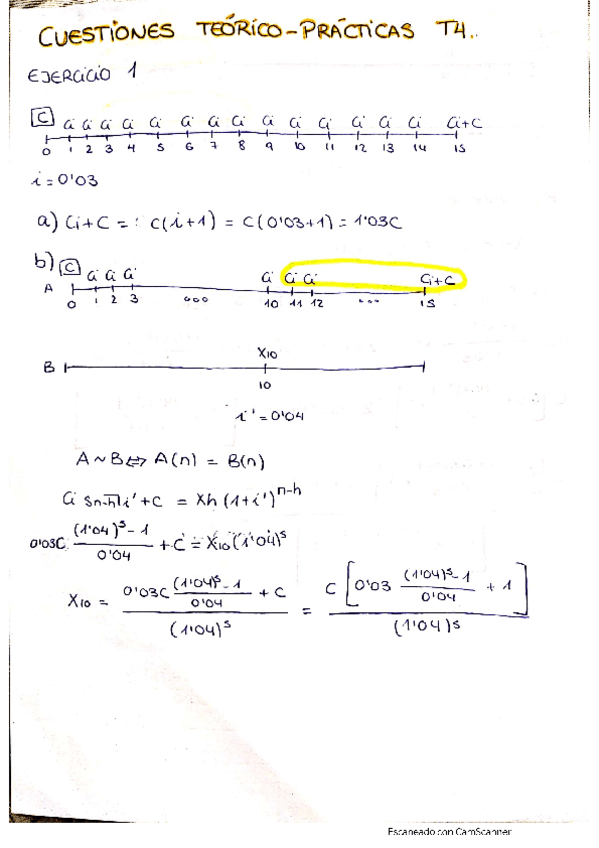 CUESTIONES TEÓRICO-PRÁCTICAS T4.
EJERCICIO 1
C Ci Ci Ci Ci Ci Ci Ci Ci Ci Ci Ci Ci Ci Ci Ci+C
0 1 2 3 4 5 6 7 8 9 10 11 12 13 14 15
i = 0'03
a) Ci+C = C(i+1) = C(0'03+1) = 1'03C
b) C Ci Ci Ci Ci Ci Ci Ci+C
A 0 1 2 3 ... 10 11 12 ... 15
X10
B
10
i' = 0'04
A ~ B ⇔ A(n) = B(n)
Ci Sn-h i' + C = Xh (1+i')^n-h
0'03C ((1'04)^5 - 1)/0'04 + C = X10 (1'04)^5
X10 = (0'03C ((1'04)^5 - 1)/0'04 + C)/(1'04)^5 = (C [0'03 ((1'04)^5 - 1)/0'04 + 1])/(1'04)^5
Escaneado con CamScanner